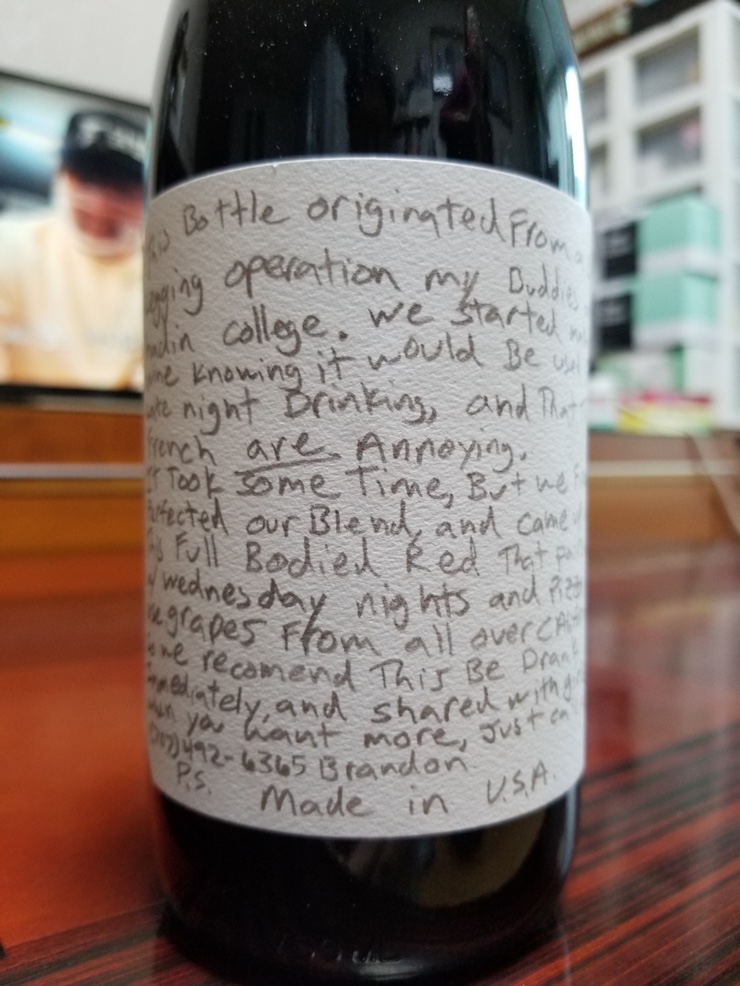 Bottle originated From
operation my Buddies
in college. we started
knowing it would Be
night Drinking, and That
French are Annoying.
IT Took some Time, But we
Perfected our Blend, and came
Full Bodied Red That
wednesday nights and
grapes From all over
we recomend This Be Drank
Immediately, and shared with
when you want more, just
492-6365 Brandon
P.S. Made in U.S.A.